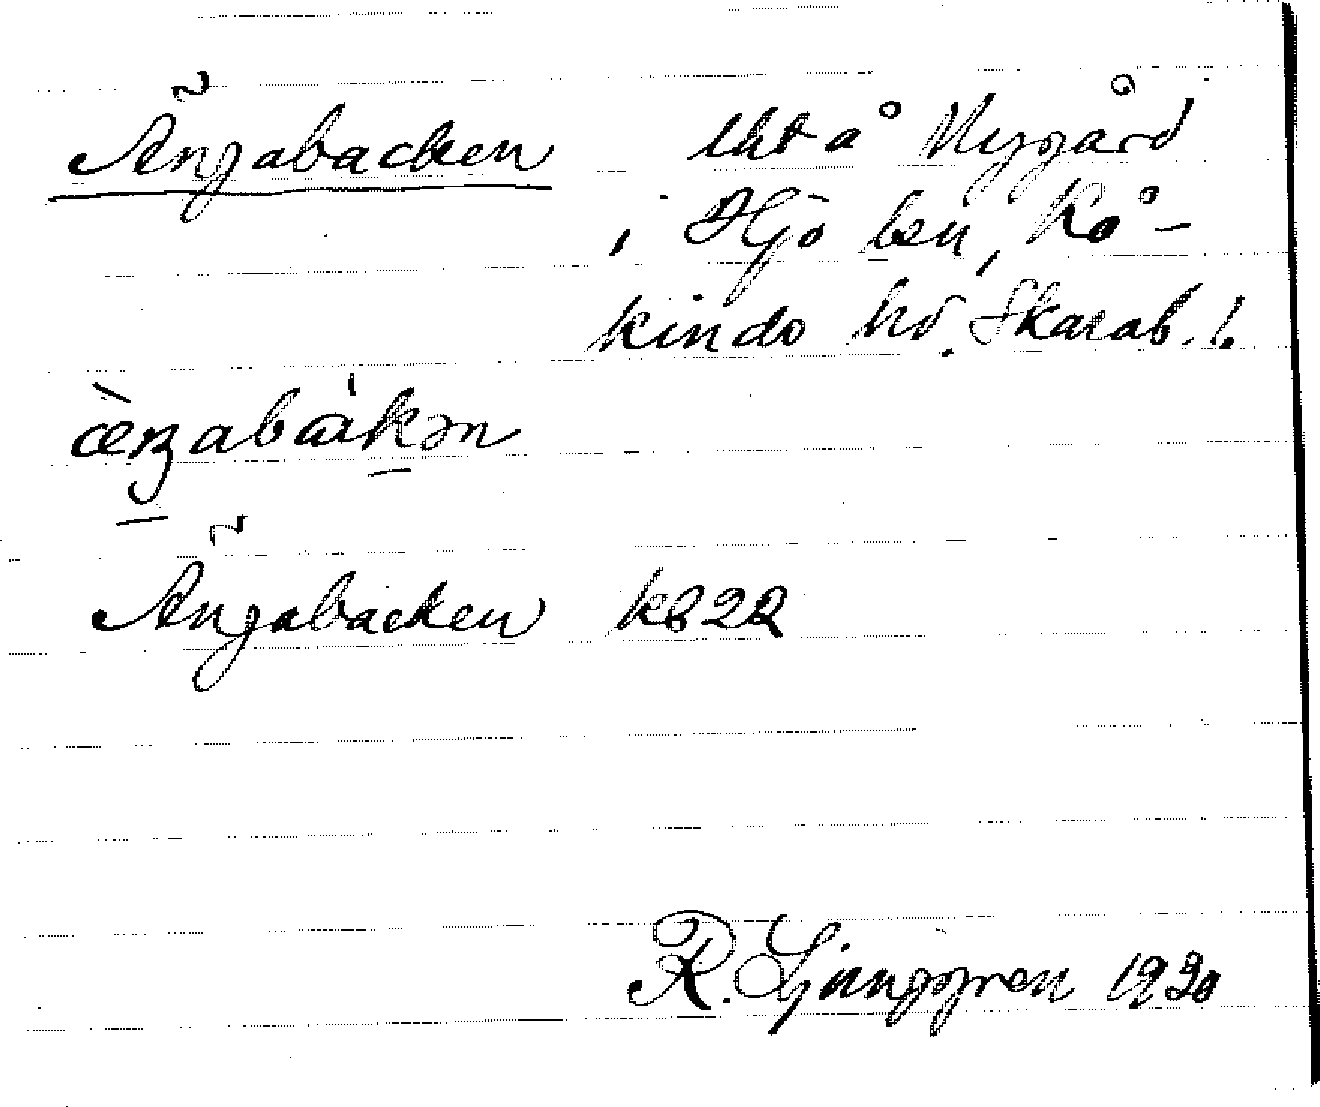 Ängabacken lht å Nygård
i Hjo lsn, Kå-
kindo hd. Skarab. l.
ængabakən
Ängabacken kb 22
R. Ljunggren 1930